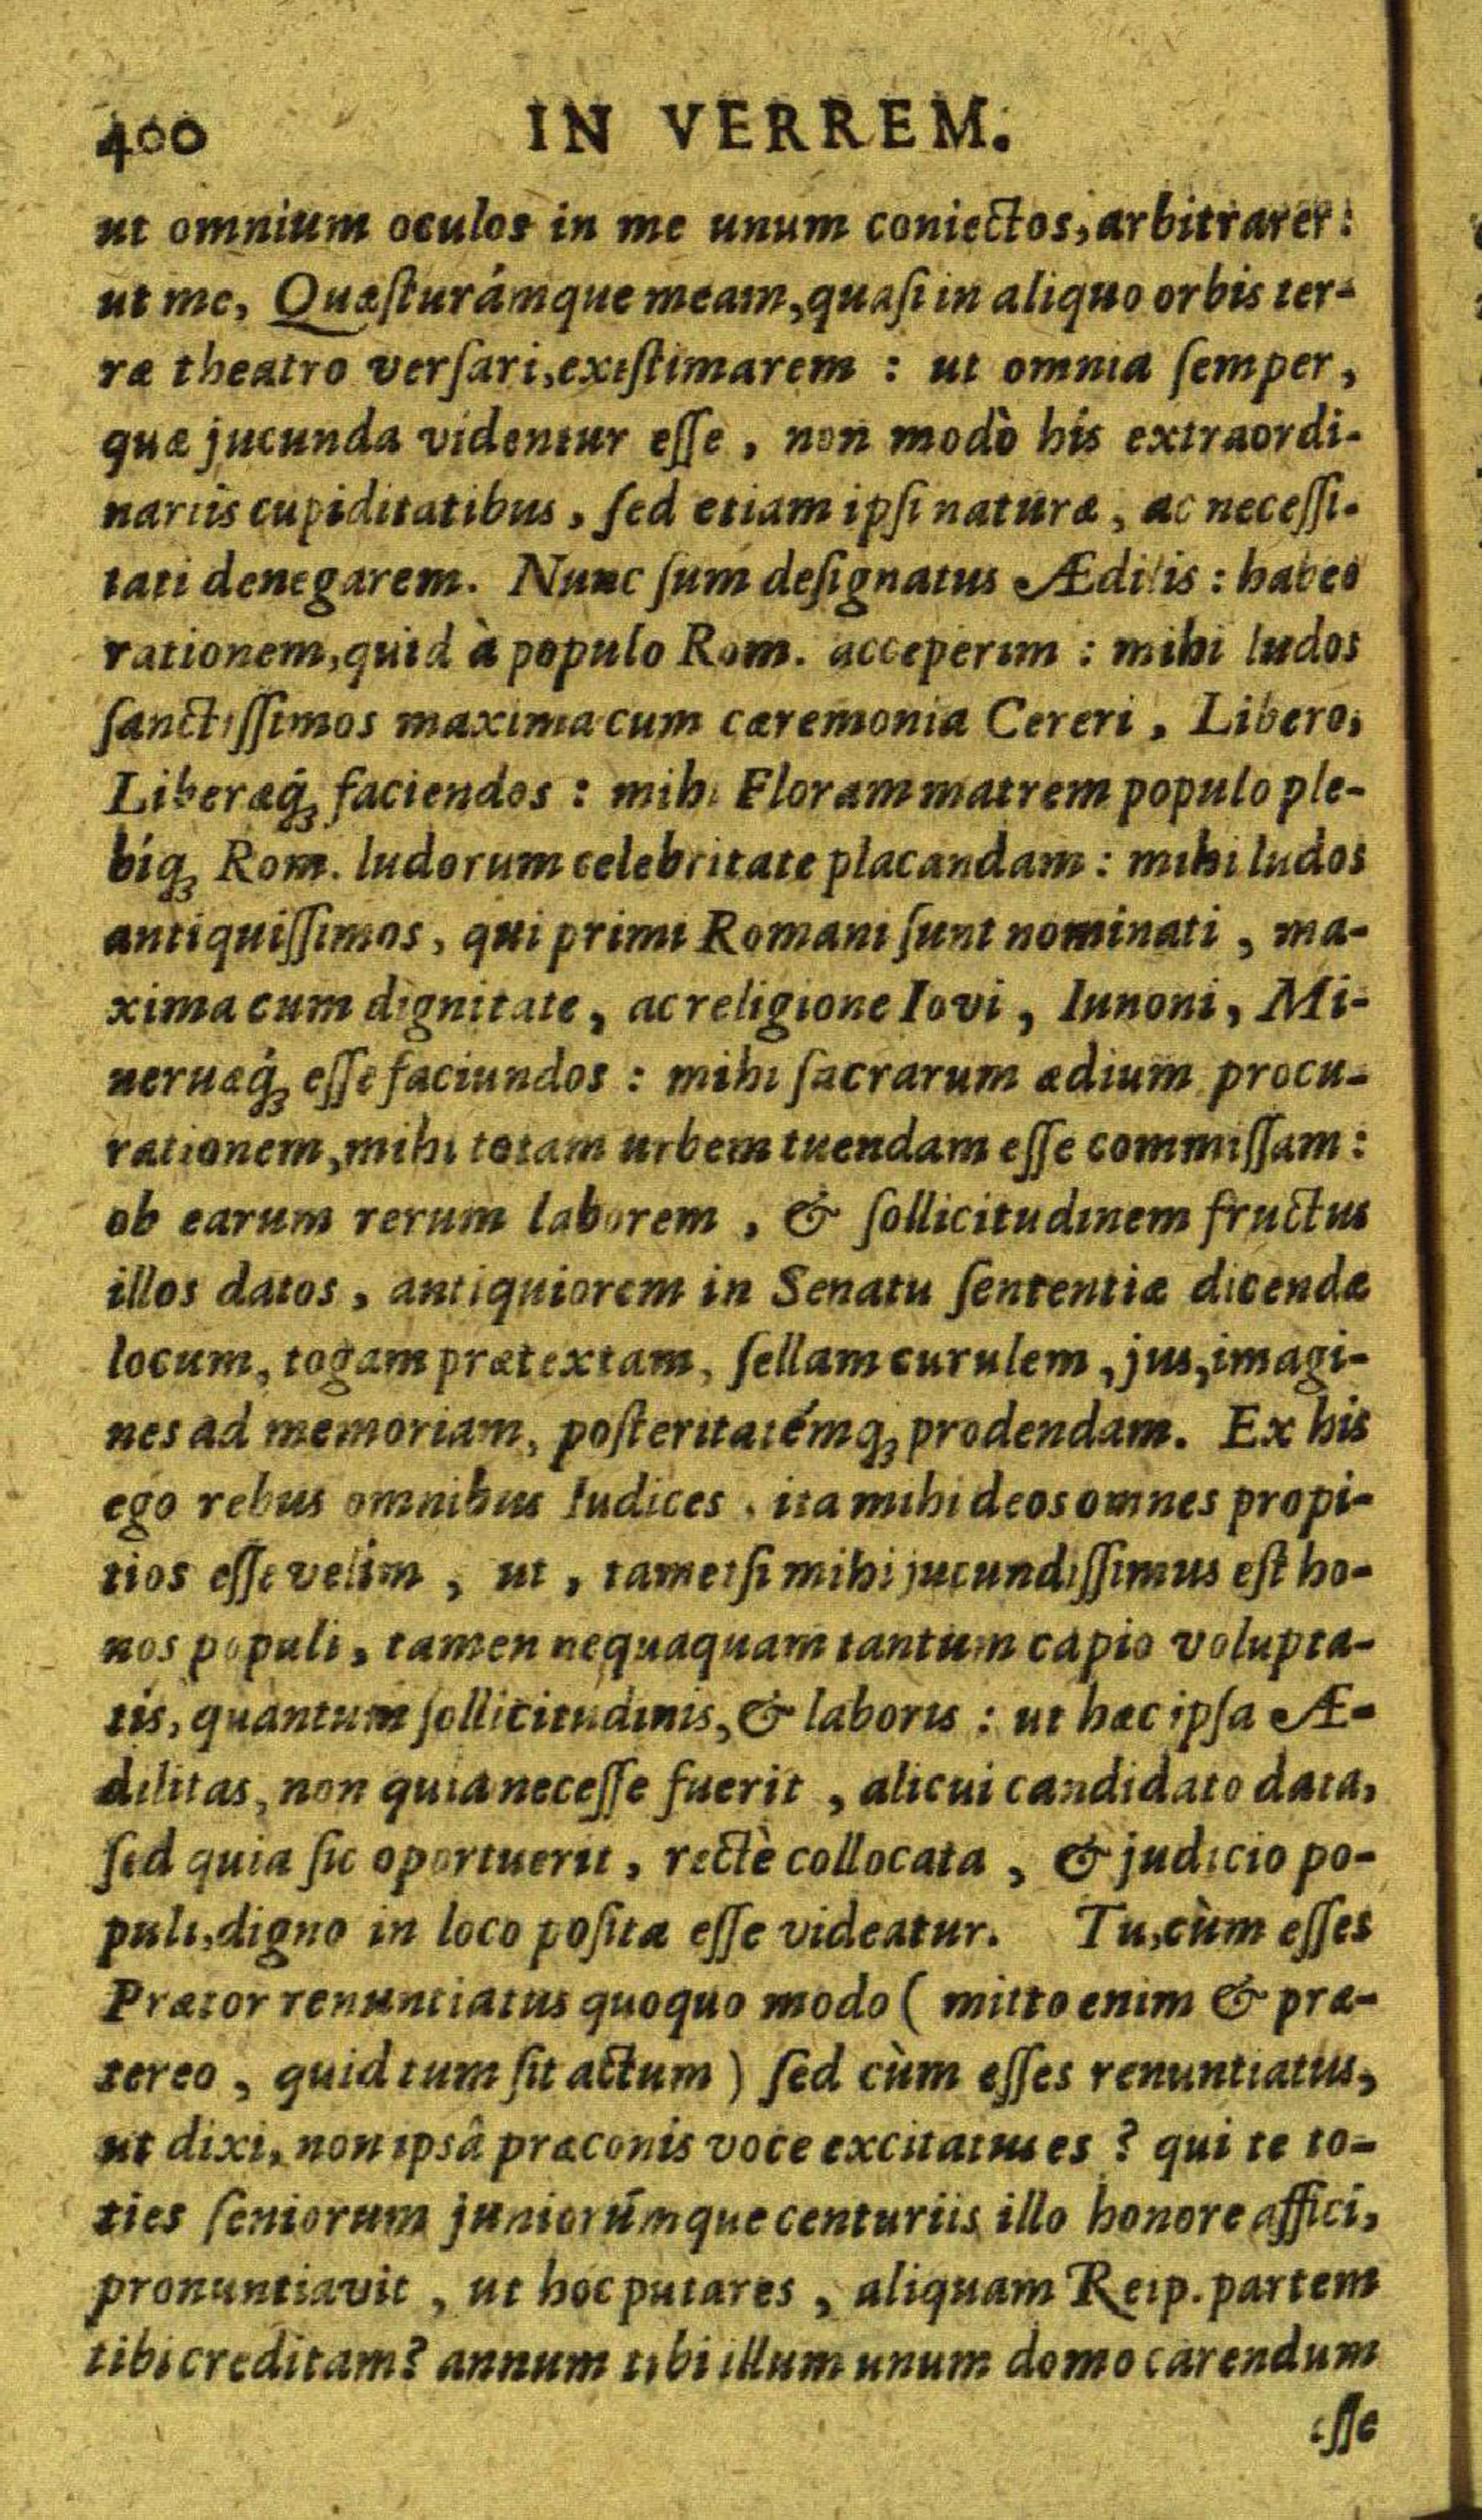 400 IN VERREM.
ut omnium oculos in me unum coniectos, arbitrarer:
ut me, Quæſturámque meam, quaſi in aliquo orbis ter-
ræ theatro verſari, exiſtimarem : ut omnia ſemper,
quæ jucunda videntur eſſe, non modò his extraordi-
nariis cupiditatibus, ſed etiam ipſi naturæ, ac neceſſi-
tati denegarem. Nunc ſum deſignatus Ædilis : habeo
rationem, quid à populo Rom. acceperim : mihi ludos
ſanctiſſimos maxima cum cæremonia Cereri, Libero,
Liberæq́ꝫ faciendos : mihi Floram matrem populo ple-
bíqꝫ Rom. ludorum celebritate placandam : mihi ludos
antiquiſſimos, qui primi Romani ſunt nominati, ma-
xima cum dignitate, ac religione Iovi, Iunoni, Mi-
neruæq́ꝫ eſſe faciundos : mihi ſacrarum ædium procu-
rationem, mihi totam urbem tuendam eſſe commiſſam:
ob earum rerum laborem, & ſollicitudinem fructus
illos datos, antiquiorem in Senatu ſententiæ dicendæ
locum, togam prætextam, ſellam curulem, jus, imagi-
nes ad memoriam, poſteritatémqꝫ prodendam. Ex his
ego rebus omnibus Iudices, ita mihi deos omnes propi-
tios eſſe velim, ut, tametſi mihi jucundiſſimus eſt ho-
nos populi, tamen nequaquam tantum capio volupta-
tis, quantum ſollicitudinis, & laboris : ut hæc ipſa Æ-
dilitas, non quia neceſſe fuerit, alicui candidato data,
ſed quia ſic oportuerit, rectè collocata, & judicio po-
puli, digno in loco poſita eſſe videatur. Tu, cùm eſſes
Prætor renuntiatus quoquo modo ( mitto enim & præ-
tereo, quid tum ſit actum ) ſed cùm eſſes renuntiatus,
ut dixi, non ipsâ præconis voce excitatus es ? qui te to-
ties ſeniorum juniorúmque centuriis illo honore affici,
pronuntiavit, ut hoc putares, aliquam Reip. partem
tibi creditam? annum tibi illum unum domo carendum
eſſe